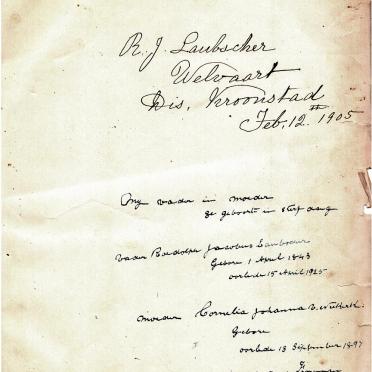 R. J. Laubscher
Welvaart
Dis, Kroonstad
Feb, 12th 1905
My vader in moeder
se geboort in sterf dag
vader Roedolph Jacobus Laubscher
Gebore 1 April 1843
oorlede 15 April 1925
moeder Cornelia Johanna
Gebore
oorlede 13 September 1897